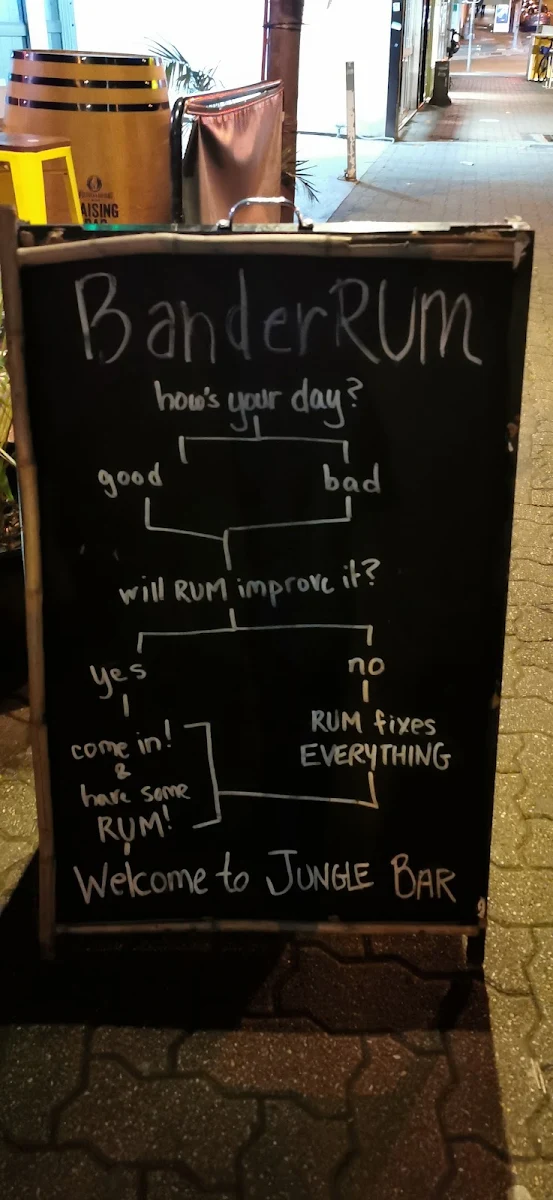 AISING
BanderRUM
how's your day?
good bad
will RUM improve it?
yes no
RUM fixes
EVERYTHING
come in!
&
have some
RUM!
Welcome to JUNGLE BAR